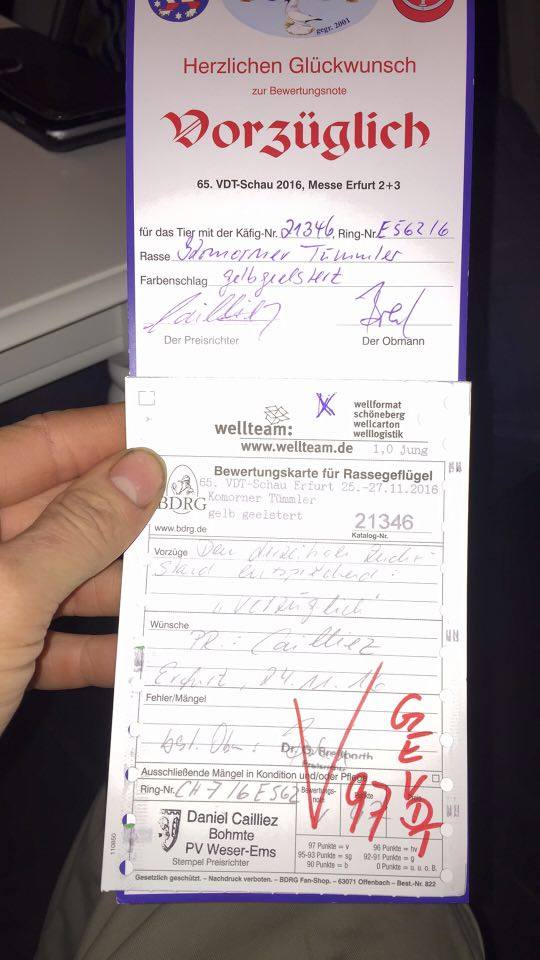 gegr. 2001
Herzlichen Glückwunsch
zur Bewertungsnote
Vorzüglich
65. VDT-Schau 2016, Messe Erfurt 2+3
für das Tier mit der Käfig-Nr. 21346, Ring-Nr. E562/6
Rasse Komorner Tümmler
Farbenschlag gelbgeelstert
Der Preisrichter Der Obmann
X
wellteam:
wellformat
schöneberg
wellcarton
welllogistik
www.wellteam.de 1,0 jung
Bewertungskarte für Rassegeflügel
65. VDT-Schau Erfurt 25.-27.11.2016
Komorner Tümmler
gelb geelstert
BDRG
www.bdrg.de
21346
Katalog-Nr.
Vorzüge Den
Stand entsprechend:
"vorzüglich"
Wünsche
PR.: Cailliez
Erfurt, 24.11.16
Fehler/Mängel
Dr.
Preisrichter
Ausschließende Mängel in Kondition und/oder Pflege
Ring-Nr. CH 7 16 E562
Bewertungs-
note
Punkte
V 97
GEVDT
Daniel Cailliez
Bohmte
PV Weser-Ems
Stempel Preisrichter
97 Punkte = v 96 Punkte = hv
95-93 Punkte = sg 92-91 Punkte = g
90 Punkte = b 0 Punkte = u. u. o. B.
110850
Gesetzlich geschützt. – Nachdruck verboten. – BDRG Fan-Shop. – 63071 Offenbach – Best.-Nr. 822